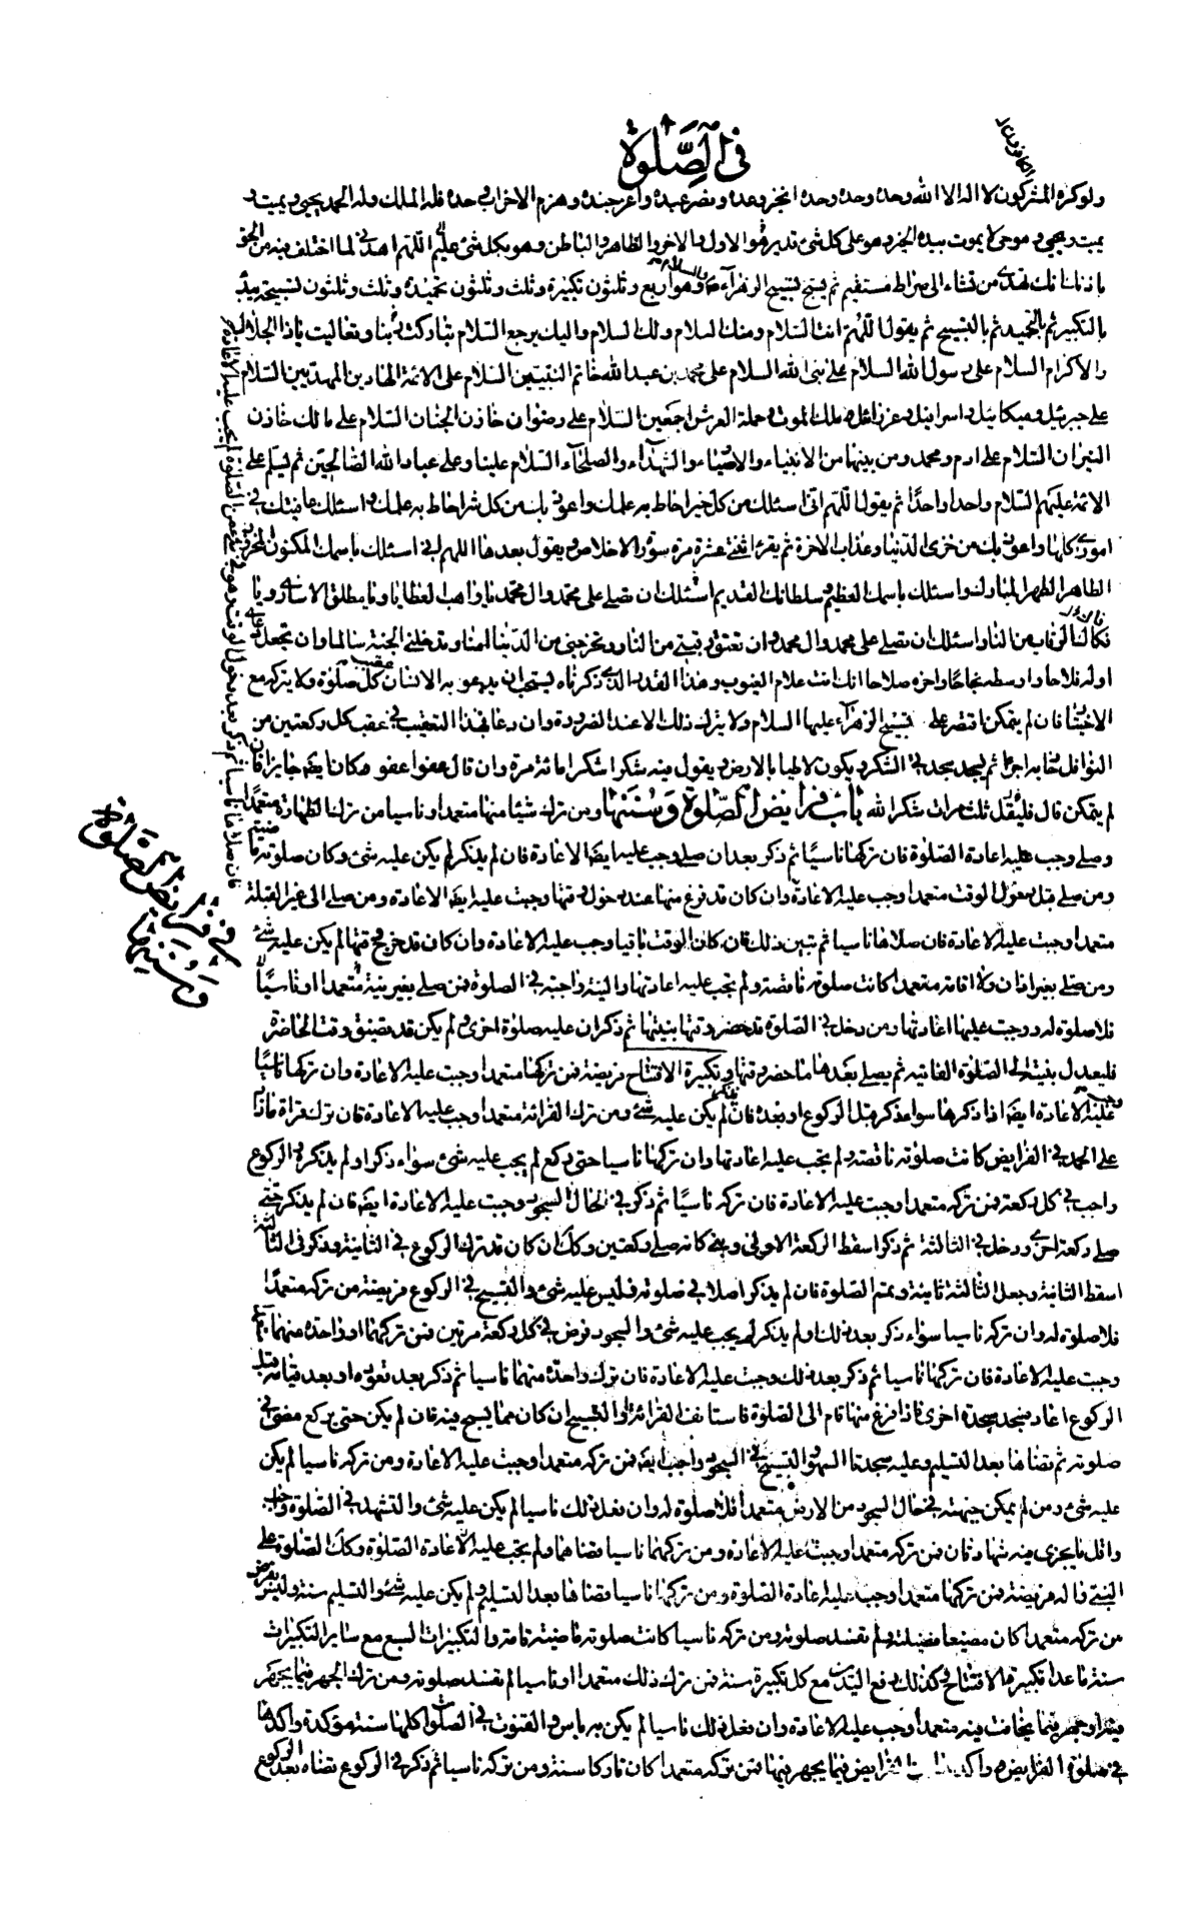 في الصلوة
ولو كره المشركون لا اله الا الله وحده وحده وحده انجز وعده ونصر عبده واعز جنده وهزم الاحزاب وحده فله الملك وله الحمد يحيي ويميت و
يميت ويحيي وهو حي لا يموت بيده الخير وهو على كل شئ قدير هو الاول والاخر والظاهر والباطن وهو بكل شئ عليم اللهم اهدني لما اختلف فيه من الحق
باذنك انك تهدى من تشاء الى صراط مستقيم ثم يسبح تسبيح الزهراء عليها السلام وهو اربع وثلثون تكبيرة وثلث وثلثون تحميدة وثلث وثلثون تسبيحة يبدء
بالتكبير ثم بالتحميد ثم بالتسبيح ثم يقول اللهم انت السلام ومنك السلام ولك السلام واليك يرجع السلام تباركت ربنا وتعاليت ياذا الجلال
والاكرام السلام على رسول الله السلام على نبي الله السلام على محمد بن عبد الله خاتم النبيين السلام على الائمة الهادين المهديين السلام
على جبرئيل وميكائيل واسرافيل وعزرائيل ملك الموت وحملة العرش اجمعين السلام على رضوان خازن الجنان السلام على مالك خازن
النيران السلام على ادم ومحمد ومن بينهما من الانبياء والاوصياء والشهداء والصلحاء السلام علينا وعلى عباد الله الصالحين ثم يسلم على
الائمة عليهم السلام واحدا واحدا ثم يقول اللهم اني اسئلك من كل خير احاط به علمك واعوذ بك من كل شر احاط به علمك واسئلك عافيتك في
اموري كلها واعوذ بك من خزى الدنيا وعذاب الاخرة ثم يقرء اثنتى عشرة مرة سورة الاخلاص ويقول بعدها اللهم اني اسئلك باسمك المكنون المخزون
الطاهر الطهر المبارك واسئلك باسمك العظيم وسلطانك القديم اسئلك ان تصلي على محمد وال محمد يا واهب العطايا ويا مطلق الاسارى ويا
فكاك الرقاب من النار اسئلك ان تصلي على محمد وال محمد وان تعتق رقبتي من النار وتخرجني من الدنيا امنا وتدخلني الجنة سالما وان تجعل دعائي
اوله فلاحا واوسطه نجاحا واخره صلاحا انك انت علام الغيوب وهذا القدر الذي ذكرناه يستحب ان يدعو به الانسان عقيب كل صلوة ولا يتركه مع
الاختيار فان لم يتمكن اقتصر على تسبيح الزهراء عليها السلام ولا يترك ذلك الا عند الضرورة وان دعا بهذا التعقيب في عقب كل ركعتين من
النوافل كان به اجر ثم ليسجد سجدتي الشكر ويكون لاطيا بالارض ويقول فيه شكرا شكرا مائة مرة وان قال عفوا عفوا كان ايضا جايزا فان
لم يتمكن قال فليقل ثلث مرات شكرا لله باب فرايض الصلوة وسننها ومن ترك شيئا منها متعمدا وناسيا من ترك الطهارة متعمدا
وصلى وجب عليه اعادة الصلوة فان تركها ناسيا ثم ذكر بعد ان صلى وجب عليه ايضا الاعادة فان لم يذكر لم يكن عليه شئ وكان صلوته
ومن صلى قبل دخول الوقت متعمدا وجب عليه الاعادة وان كان قد فرغ منها عند دخول وقتها وجبت عليه ايضا الاعادة ومن صلى الى غير القبلة
متعمدا وجبت عليه الاعادة فان صلاها ناسيا ثم تبين ذلك فان كان الوقت باقيا وجب عليه الاعادة وان كان قد خرج وقتها لم يكن عليه شئ
ومن صلى بغير اذان ولا اقامة متعمدا كانت صلوته ناقصة ولم يجب عليه اعادتها والنية واجبة في الصلوة فمن صلى بغير نية متعمدا او ناسيا
فلا صلوة له ووجبت عليه اعادتها ومن دخل في الصلوة قد حضر وقتها بنيتها ثم ذكر ان عليه صلوة اخرى ولم يكن قد تضيق وقت الحاضرة
فليعدل بنيته الى الصلوة الفائتة ثم يصلي بعدها ما حضر وقتها وتكبيرة الافتتاح فريضة فمن تركها متعمدا وجبت عليه الاعادة وان تركها ناسيا
وجبت عليه الاعادة ايضا اذا ذكرها سواء ذكر قبل الركوع او بعده فان لم يكن عليه شئ ومن ترك القرائة متعمدا وجب عليه الاعادة فان ترك قرائة مازاد
على الحمد في الفرايض كانت صلوته ناقصة ولم يجب عليه اعادتها وان تركها ناسيا حتى يركع لم يجب عليه شئ سواء ذكر او لم يذكر والركوع
واجب في كل ركعة فمن تركه متعمدا وجبت عليه الاعادة فان تركه ناسيا ثم ذكر في الحال السجود وجبت عليه الاعادة ايضا فان لم يذكر حتى
صلى ركعة اخرى ودخل في الثالثة ثم ذكر اسقط الركعة الاولى وبنى كانه صلى ركعتين وكك ان كان قد ترك الركوع في الثانية وذكر في الثالثة
اسقط الثانية وجعل الثالثة ثانية وتمم الصلوة فان لم يذكر اصلا في صلوته فليس عليه شئ والتسبيح في الركوع فريضة من تركه متعمدا
فلا صلوة له وان تركه ناسيا سواء ذكر بعد ذلك او لم يذكر لم يجب عليه شئ والسجود فرض في كل ركعة مرتين فمن تركهما او واحدة منهما متعمدا
وجبت عليه الاعادة فان تركهما ناسيا ثم ذكر بعد ذلك وجبت عليه الاعادة فان ترك واحدة منهما ناسيا ثم ذكر بعد قعوده او بعد قيامه قبل
الركوع اعاد فسجد سجدة اخرى فاذا فرغ منها قام الى الصلوة فاستانف القرائة او التسبيح ان كان مما يسبح فيه فان لم يكن حتى يركع مضى في
صلوته ثم قضاها بعد التسليم وعليه سجدتا السهو والتسبيح في السجود واجب ايضا فمن تركه متعمدا وجبت عليه الاعادة ومن تركه ناسيا لم يكن
عليه شئ ومن لم يمكن جبهته في حال السجود من الارض متعمدا فلا صلوة له وان فعل ذلك ناسيا لم يكن عليه شئ والتشهد في الصلوة واجب
واقل ما يجزى فيه شهادتان فمن تركه متعمدا وجبت عليه الاعادة ومن تركهما ناسيا قضاهما ولم يجب عليه الاعادة الصلوة وكك الصلوة على
النبي واله فريضة فمن تركها متعمدا وجب عليه اعادة الصلوة ومن تركها ناسيا قضاها بعد التسليم ولم يكن عليه شئ والتسليم سنة وليس بفرض
من تركه متعمدا كان مضيعا فضيلة ولم تفسد صلوته ومن تركه ناسيا كانت صلوته ماضية تامة والتكبيرات السبع مع ساير التكبيرات
سنة ما عدا تكبيرة الافتتاح وكذلك رفع اليدين مع كل تكبيرة سنة فمن ترك ذلك متعمدا او ناسيا لم تفسد صلوته ومن ترك الجهر فيما يجهر
فيه او جهر فيما يخافت فيه متعمدا وجب عليه الاعادة وان فعل ذلك ناسيا لم يكن به باس والقنوت في الصلوات كلها سنة مؤكدة واكدها
في صلوة الفرايض واكد الفرايض فيما يجهر فيها فمن تركه متعمدا كان تاركا سنة ومن تركه ناسيا ثم ذكر في الركوع قضاه بعد الركوع
في فرايض الصلوة
وسننها